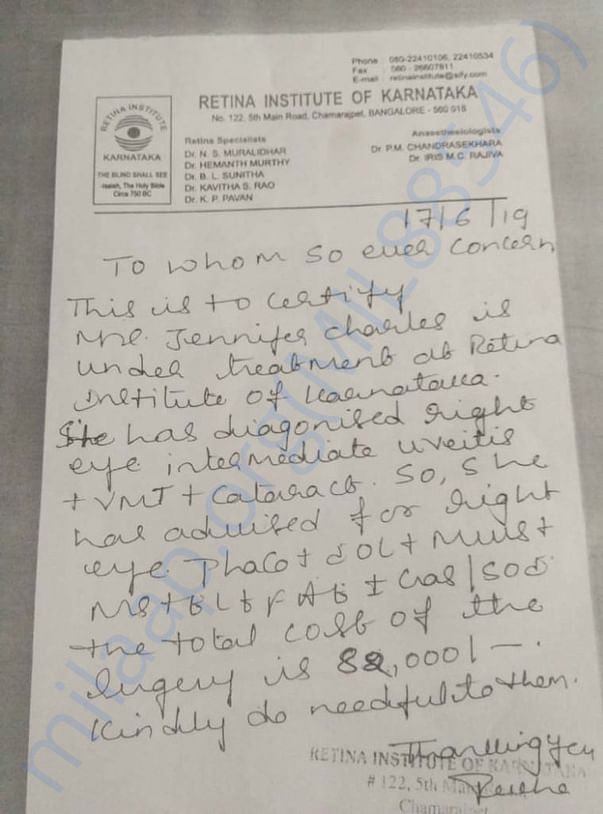 Phone : 080-22410106, 22410534
Fax : 080 - 26607811
E-mail : retinainstitute@sify.com
RETINA INSTITUTE OF KARNATAKA
No. 122, 5th Main Road, Chamarajpet, BANGALORE - 560 018
RETINA INSTITUTE
KARNATAKA
THE BLIND SHALL SEE
Isaiah, The Holy Bible
Circa 750 BC
Retina Specialists
Dr. N. S. MURALIDHAR
Dr. HEMANTH MURTHY
Dr. B. L. SUNITHA
Dr. KAVITHA S. RAO
Dr. K. P. PAVAN
Anaesthesiologists
Dr. P.M. CHANDRASEKHARA
Dr. IRIS M.C. RAJIVA
17/6/19
To whom so ever concern
This is to certify
Mrs. Jennifer charles is
under treatment at Retina
Institute of Karnataka.
She has diagonised right
eye intermediate uveitis
+ VMT + cataract. So, she
has advised for right
eye Phaco + IOL +
the total cost of the
surgery is 82,000/-.
Kindly do needful to them.
Thanking you
RETINA INSTITUTE OF KARNATAKA
# 122, 5th Main
Chamarajpet
milaap.org